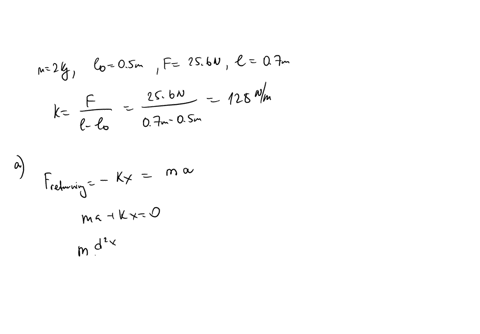 m=2kg, l₀=0.5m, F=25.6N, l=0.7m
K= F/(l-l₀) = 25.6N/(0.7m-0.5m) = 128 N/m
a) F returning = - Kx = ma
ma + Kx=0
m d²x